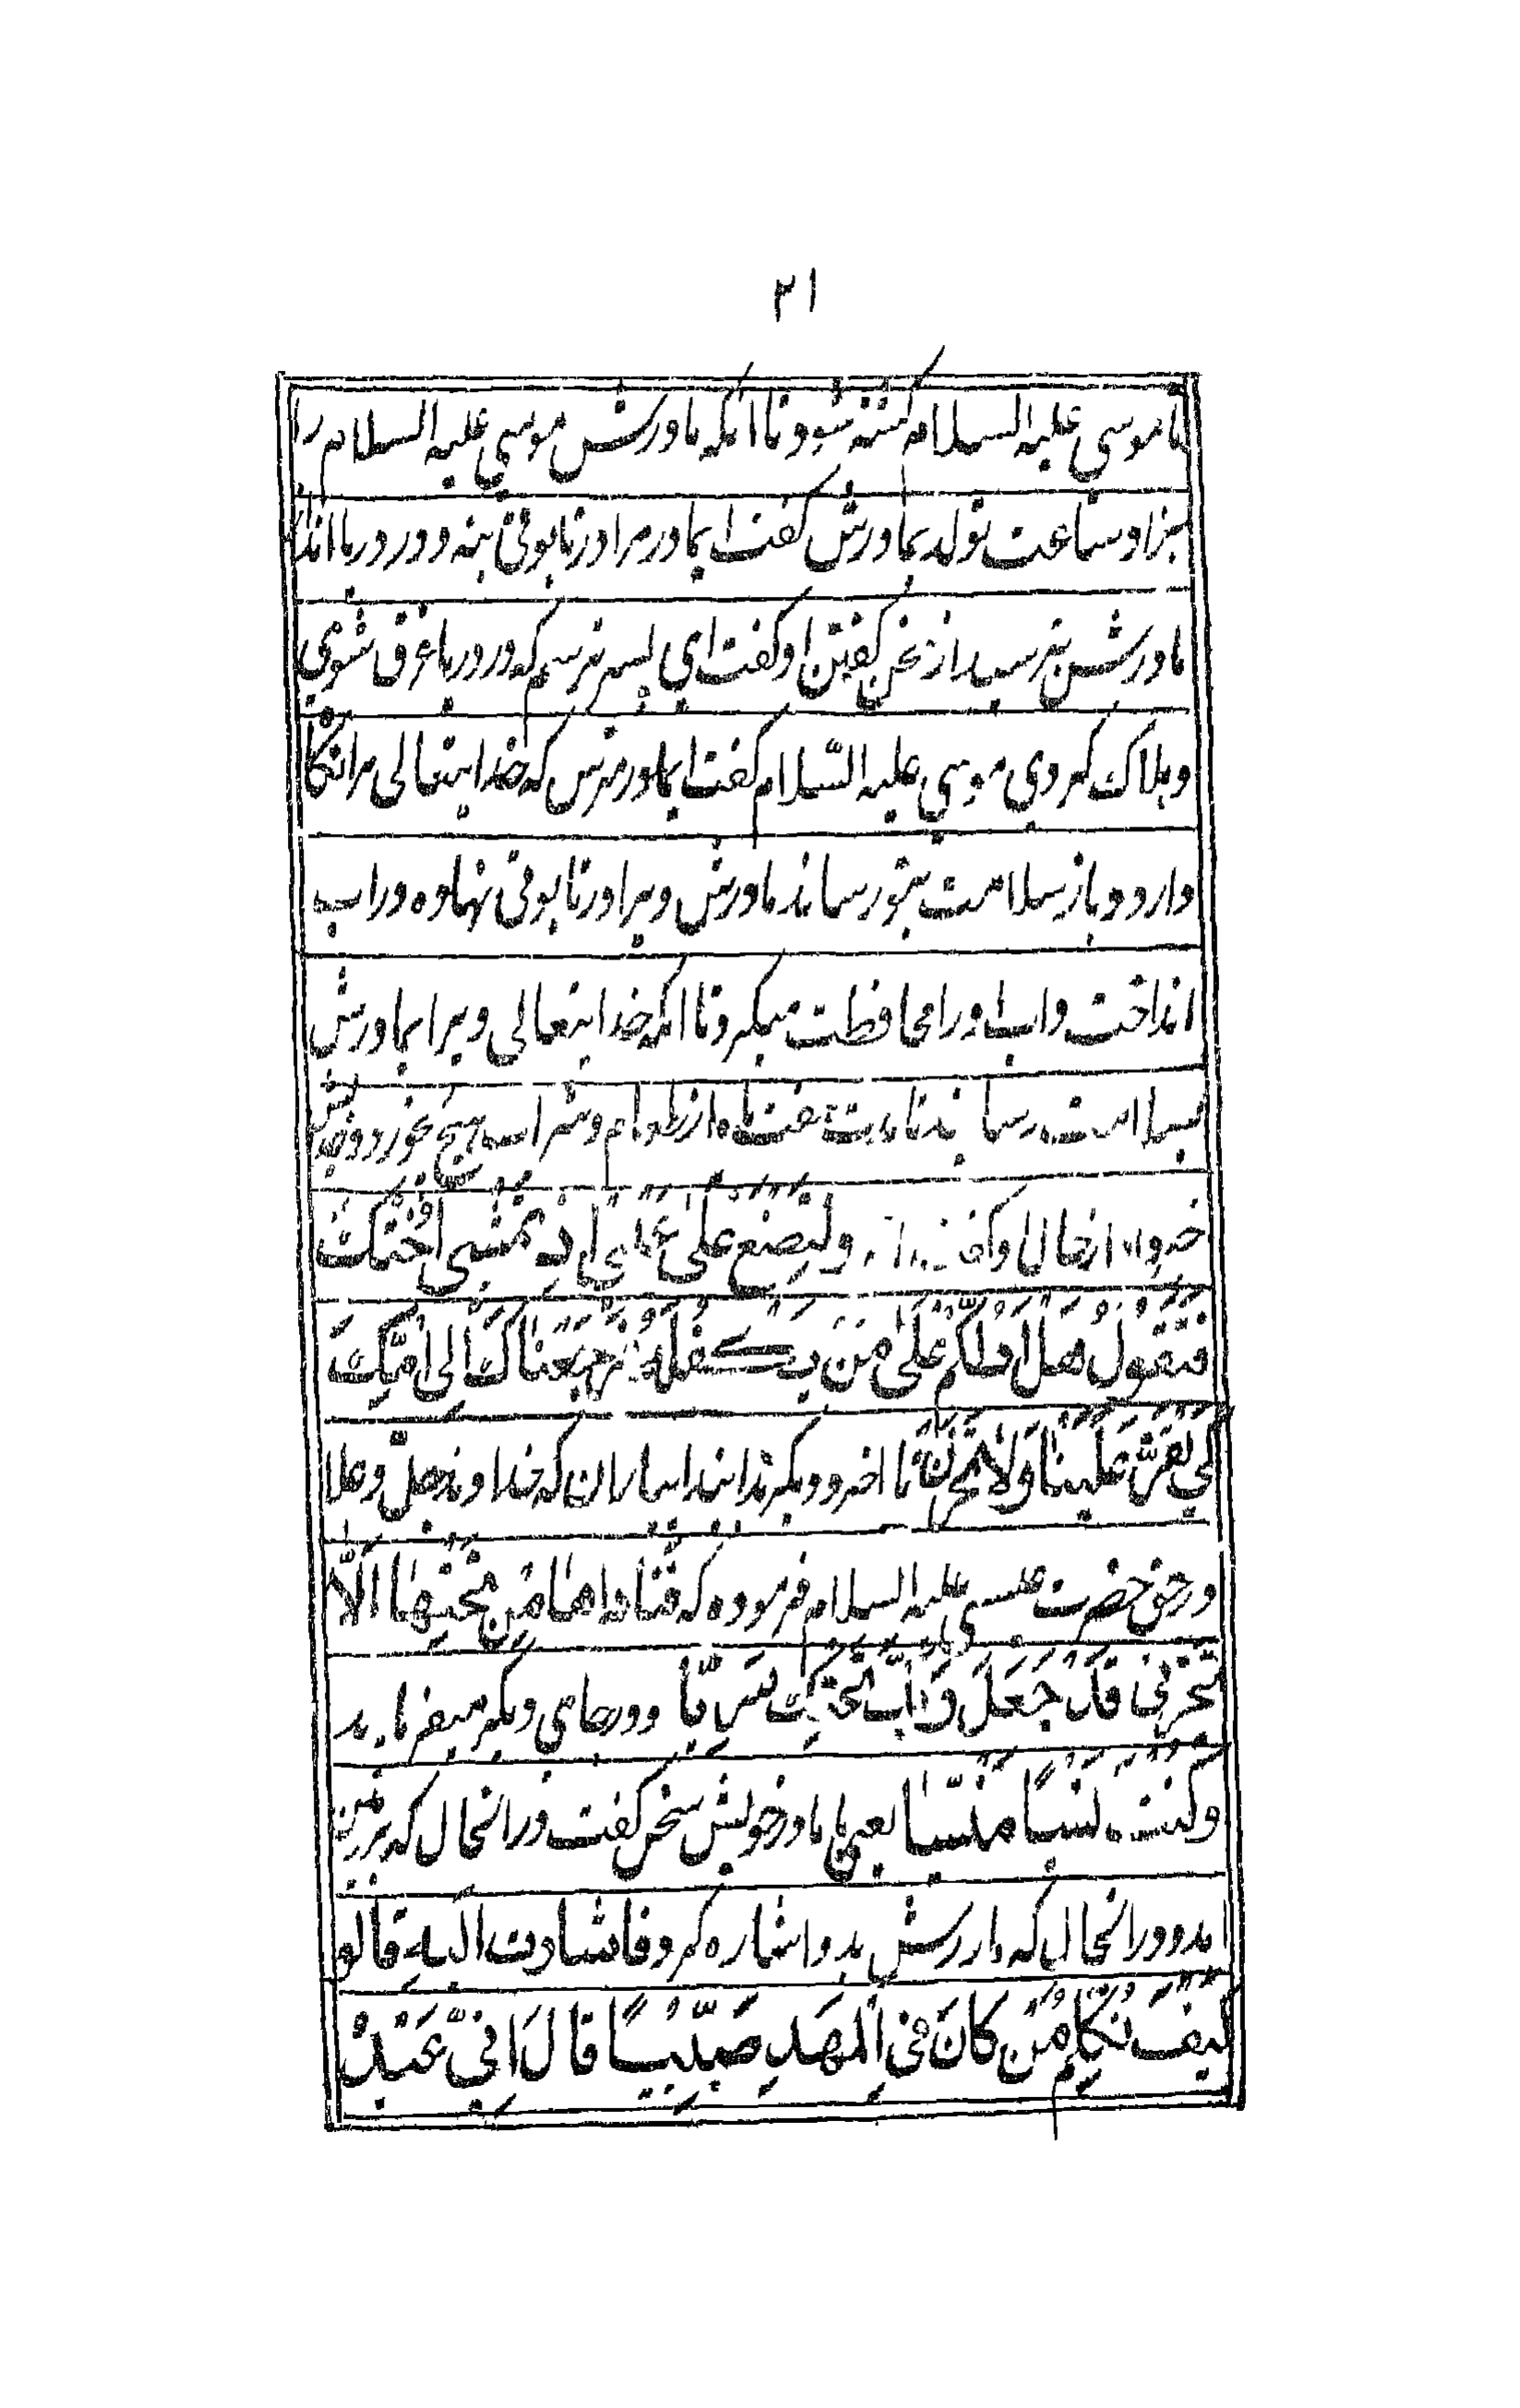 ٢١
تا موسی علیه السلام کشته شود تا آنکه مادرش موسی علیه السلام را
بزاد ساعت تولد بمادرش گفت ایمادر مرا در تابوتی بنه و در دریا انداز
مادرش بترسید از سخن گفتن او گفت ای پسر ترسم که در دریا غرق شوی
و هلاک کردی موسی علیه السّلام گفت ایمادر مترس که خدایتعالی مرا نگاه
دارد و باز سلامت بتو رساند مادرش ویرا در تابوتی نهاده در آب
انداخت و آب او را محافظت میکرد تا آنکه خدایتعالی ویرا بمادرش
بسلامت رسانید تا مدت هفتاد از طعام و شراب هیچ نخورد و
خبر داد از حال او ولتصنع علی عینی اذ تمشی اختک
فتقول هل ادلکم علی من یکفله فرجعناک الی امّک
کی تقرّ عینها ولا تحزن تا آخر و دیگر بدانید ای یاران که خداوند جلّ و علا
در حق حضرت عیسی علیه السلام فرموده که فناداها من تحتها الّا
تحزنی قد جعل ربّک تحتک سریّا و در جای دیگر میفرماید
وکنت نسیًا منسیّا یعنی با مادر خویش سخن گفت در آنحال که بر زمین
آمد و در آنحال که مادرش بدو اشاره کرد فاشارت الیه قالو
کیف نکلم من کان فی المهد صبیًّا قال انّی عبد